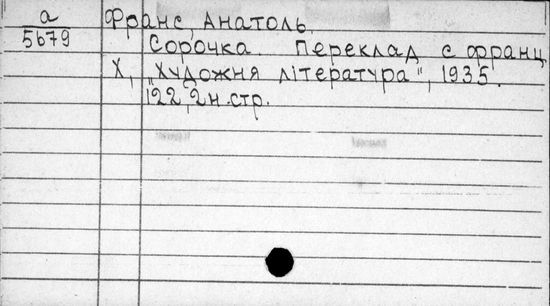 а
5679
Франс, Анатоль.
Сорочка. Переклад с франц
Х, „Художня література", 1935.
122, 2 н. стр.